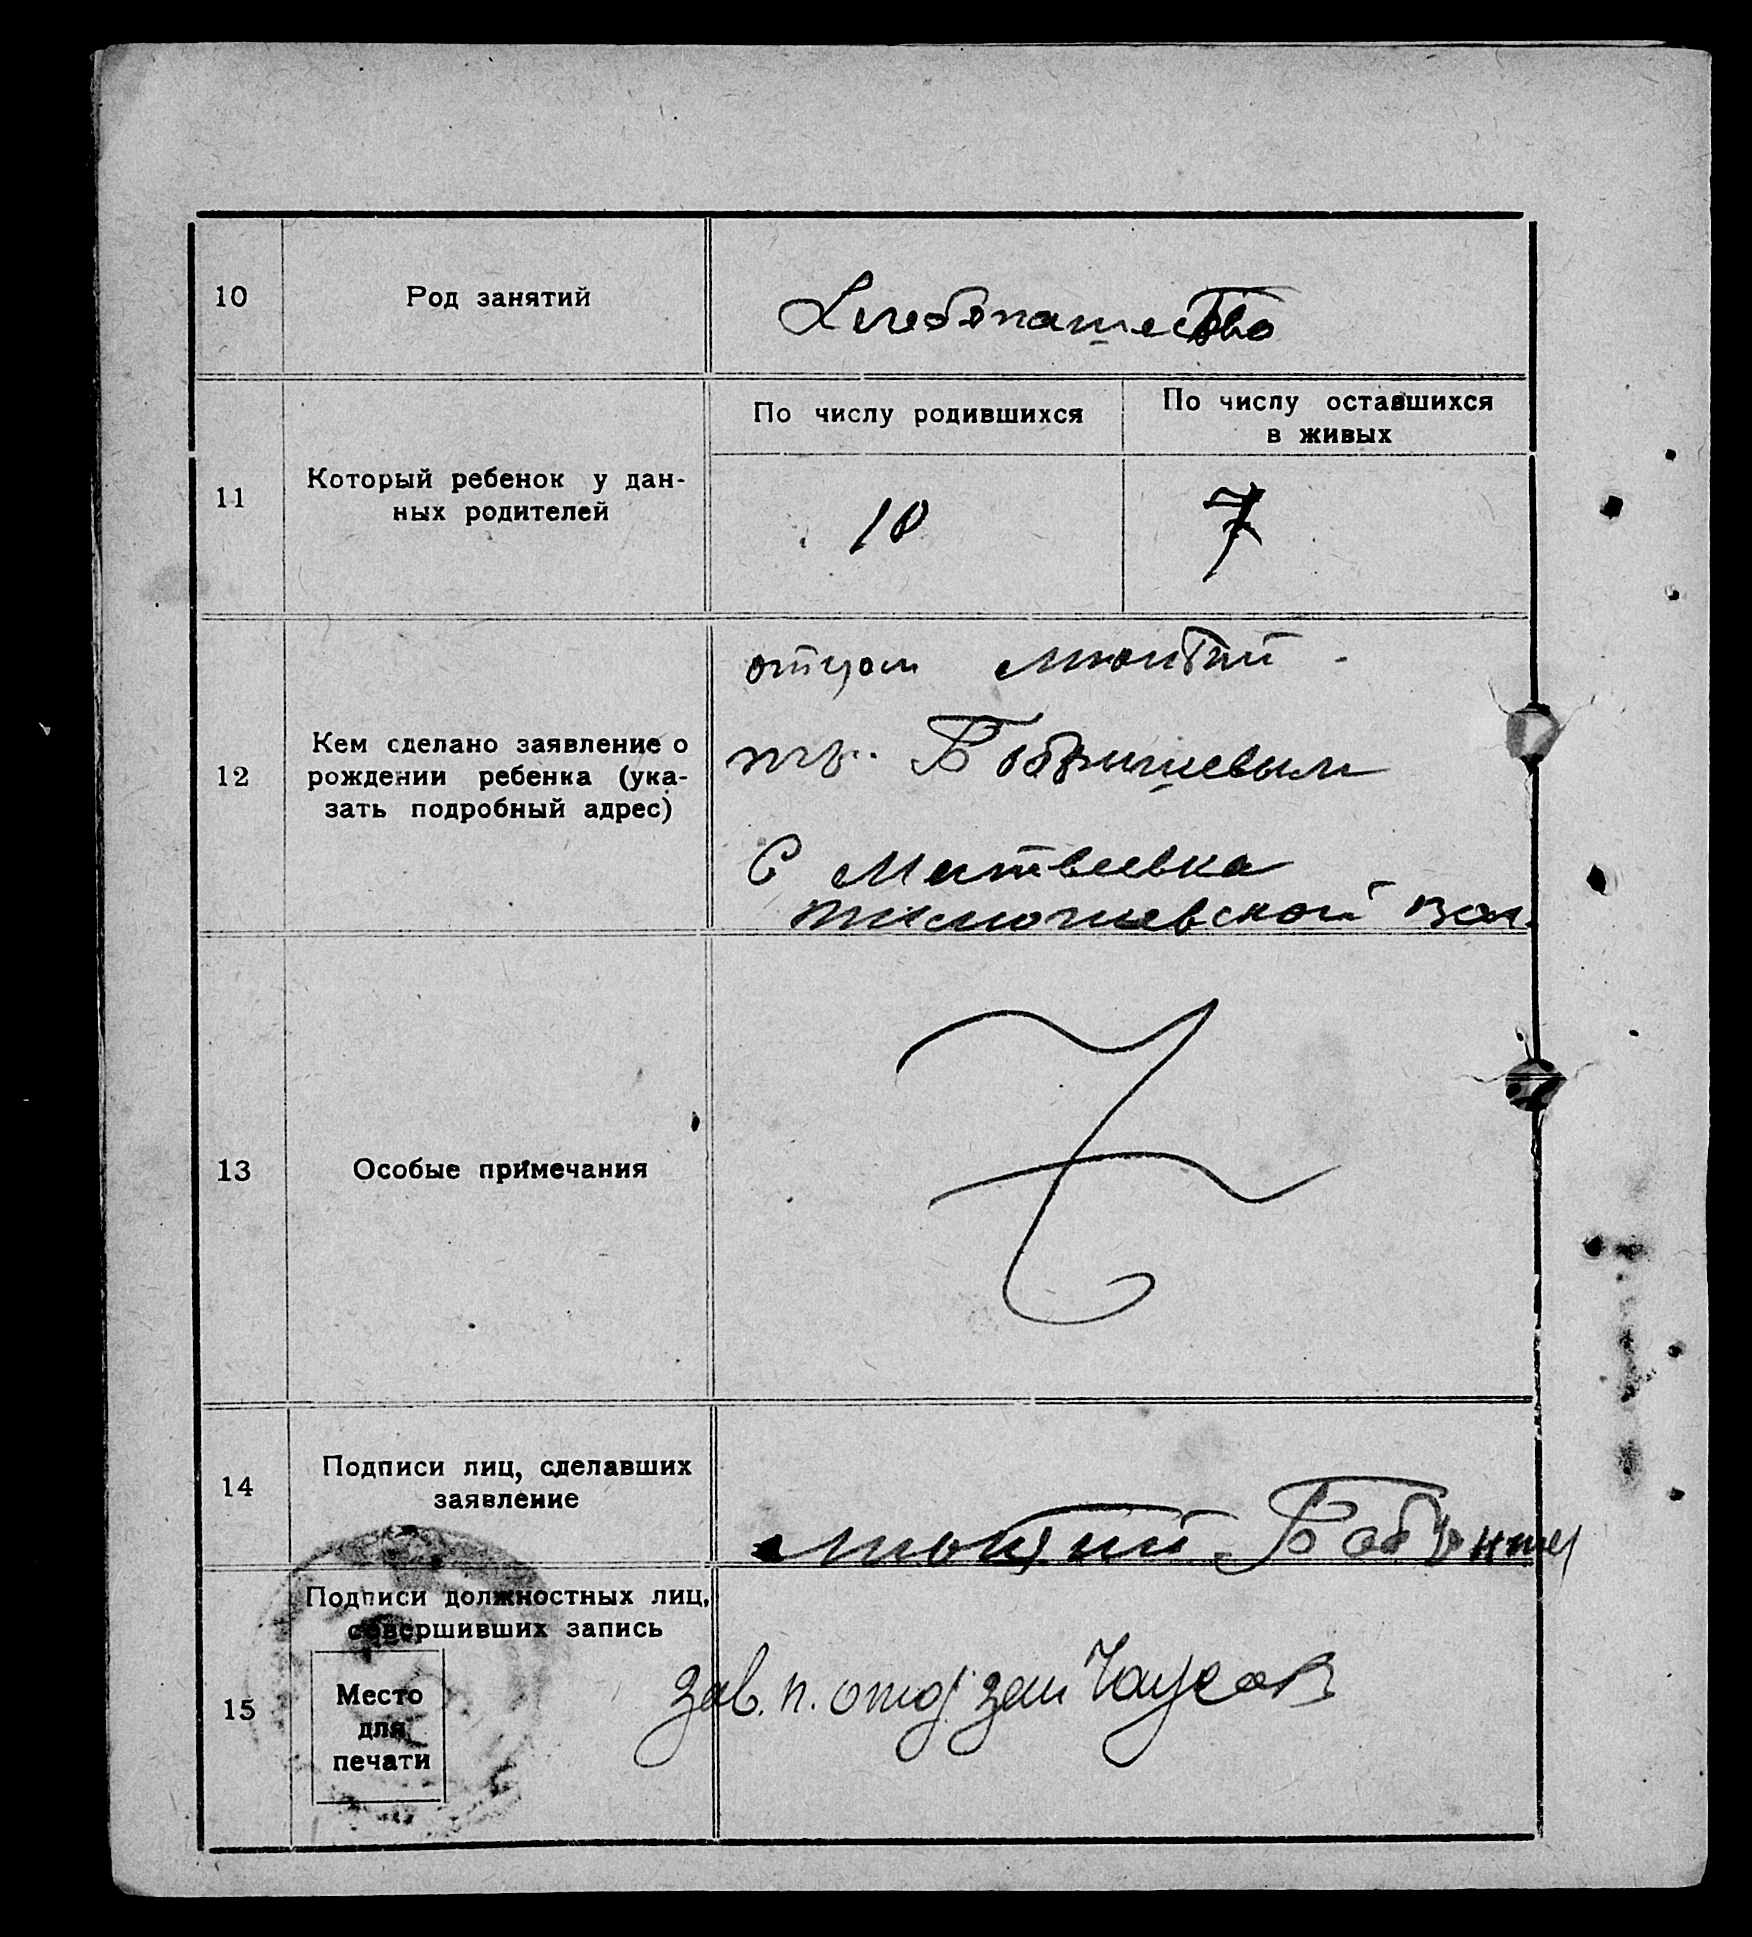 10
Род занятий
Хлебопашество
11
Который ребенок у дан-
ных родителей
По числу родившихся
По числу оставшихся
в живых
10
7
12
Кем сделано заявление о
рождении ребенка (ука-
зать подробный адрес)
отцом
Бобрышевым
С Матвеевка
вол.
13
Особые примечания
14
Подписи лиц, сделавших
заявление
15
Подписи должностных лиц,
совершивших запись
Место
для
печати
Зав. п. отд.